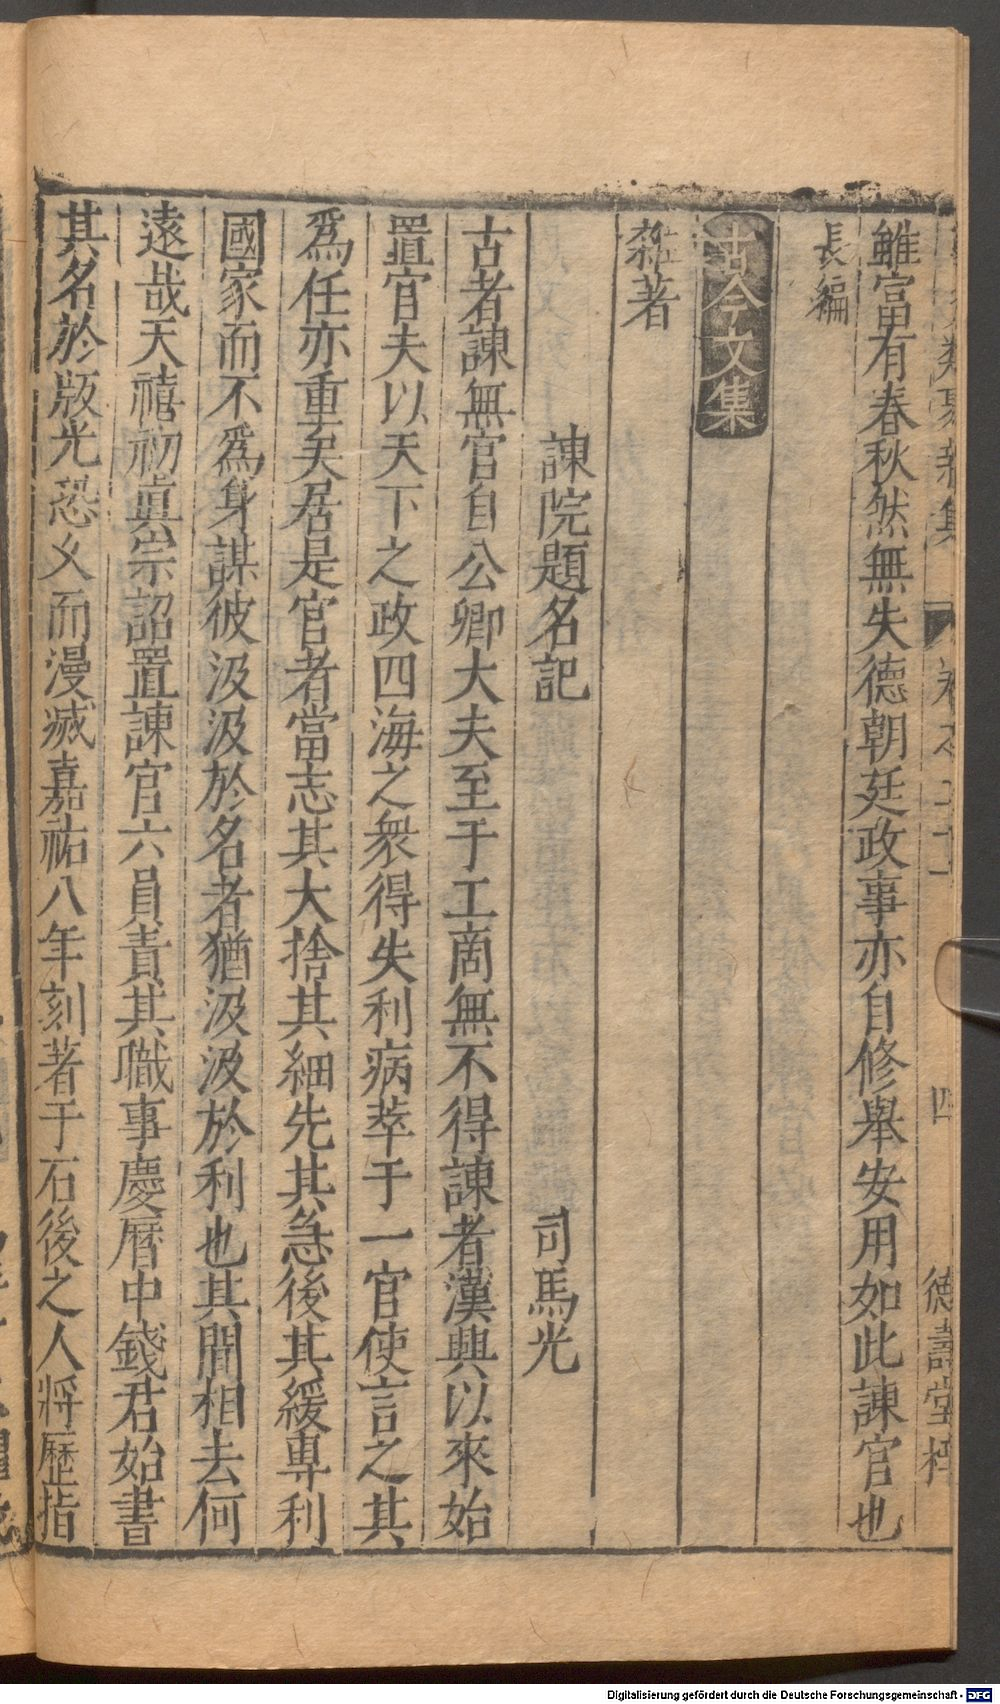 雖富有春秋然無失德朝廷政事亦自修舉安用如此諫官也
長編
古今文集
雜著
諫院題名記 司馬光
古者諫無官自公卿大夫至于工商無不得諫者漢興以來始
置官夫以天下之政四海之衆得失利病萃于一官使言之其
爲任亦重矣居是官者當志其大捨其細先其急後其緩專利
國家而不爲身謀彼汲汲於名者猶汲汲於利也其間相去何
遠哉天禧初眞宗詔置諫官六員責其職事慶曆中錢君始書
其名於版光恐久而漫滅嘉祐八年刻著于石後之人將歷指
四
德壽堂梓
Digitalisierung gefördert durch die Deutsche Forschungsgemeinschaft - DFG